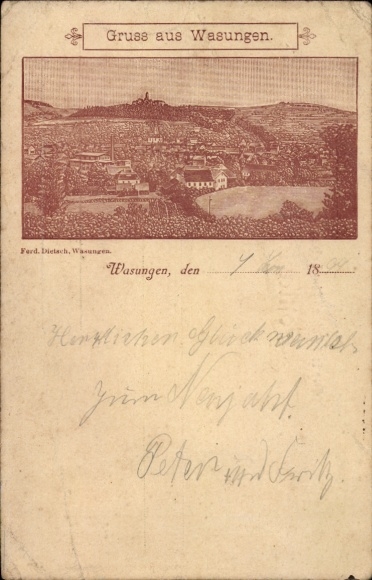 Gruss aus Wasungen.
Ferd. Dietsch, Wasungen.
Wasungen, den 18
Herzlichen Glückwunsch
zum Neujahr.
Peter und Fritz.